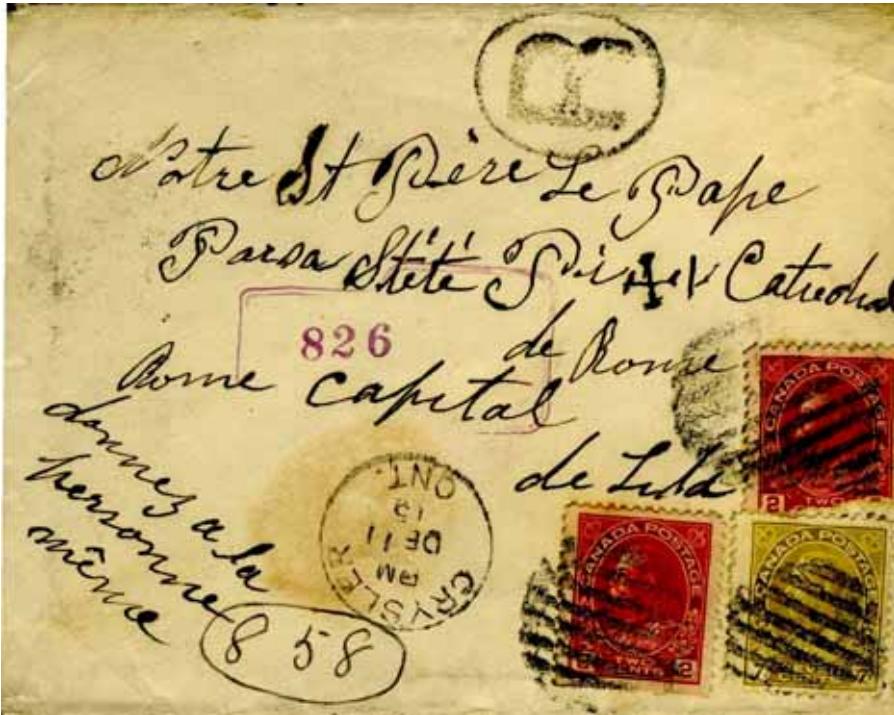 R
Notre St Père Le Pape
Parsa Stété Pi
de Rome
826
Rome Capital
de
donnez a la
personne
même
CRYSLER
AM
DE 11
19
ONT.
858
CANADA POSTAGE
2 TWO
CANADA POSTAGE
2 TWO CENTS 2
CANADA POSTAGE
7 7